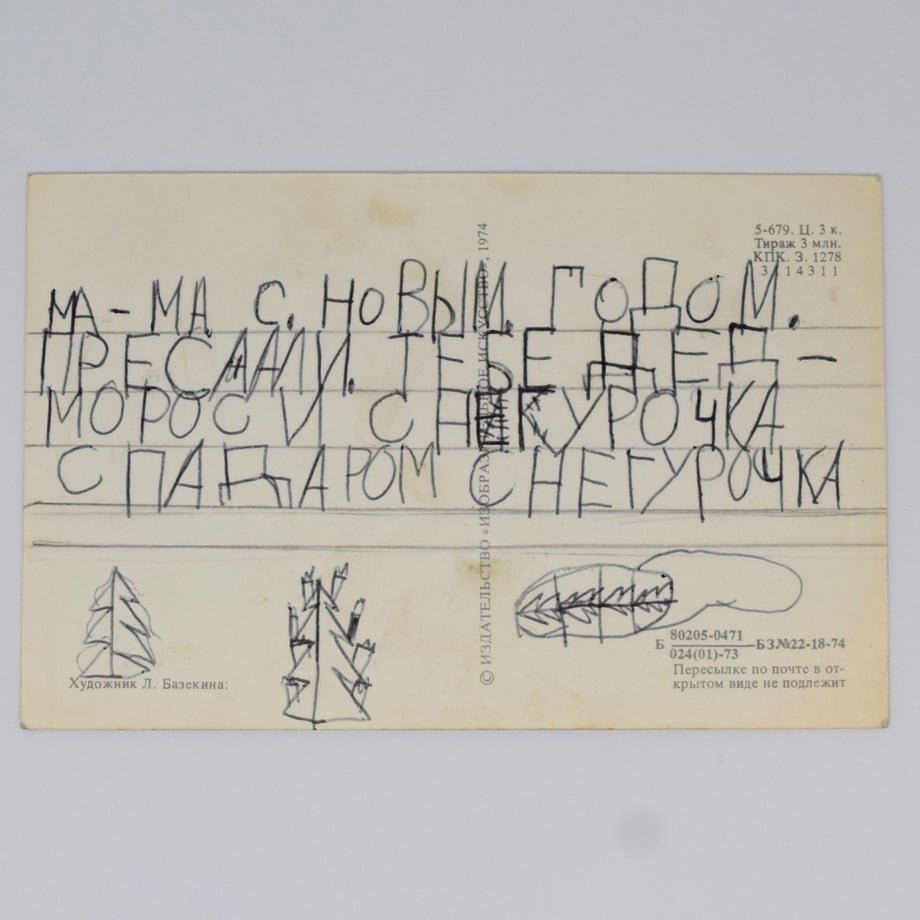 5-679. Ц. 3 к.
Тираж 3 млн.
КПК. З. 1278
3 114311
МА-МА С. НОВЫЙ. ГОДОМ.
ПРЕСЛАЛИ. ТЕБЕ ДЕД-
МОРОС И СНЕКУРОЧКА
С ПАДАРОМ СНЕГУРОЧКА
© ИЗДАТЕЛЬСТВО «ИЗОБРАЗИТЕЛЬНОЕ ИСКУССТВО», 1974
Художник Л. Базекина.
Б 80205-0471 БЗ№22-18-74
024(01)-73
Пересылке по почте в от-
крытом виде не подлежит